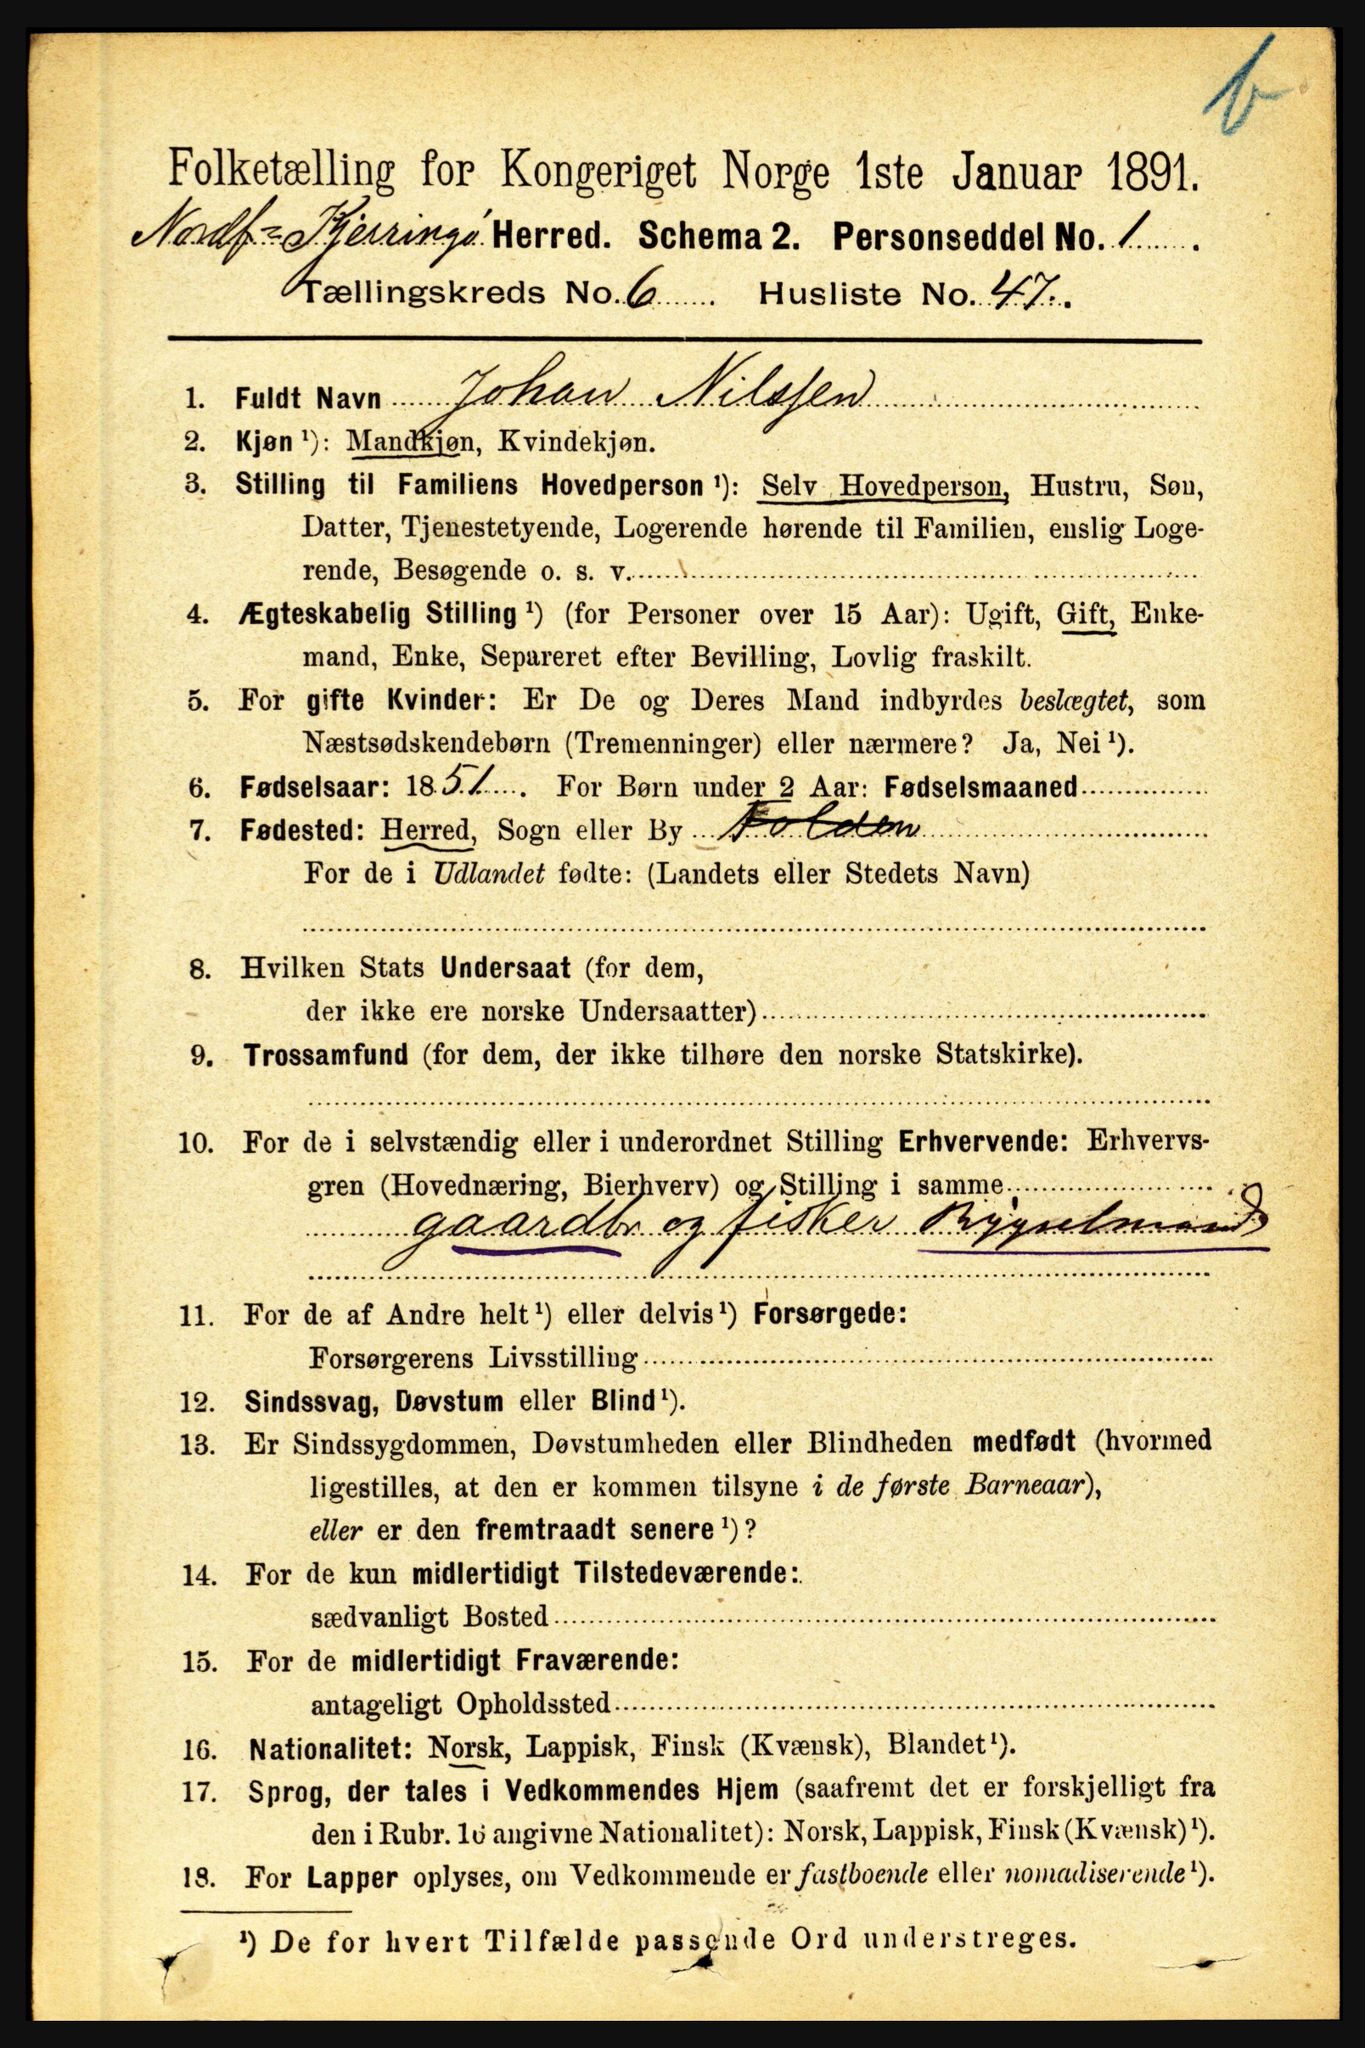 b
Folketælling for Kongeriget Norge 1ste Januar 1891.
Nordf=Kjerringø Herred. Schema 2. Personseddel No. 1.
Tællingskreds No. 6. Husliste No. 47.
1. Fuldt Navn Johan Nilssen
2. Kjøn ¹): Mandkjøn, Kvindekjøn.
3. Stilling til Familiens Hovedperson ¹): Selv Hovedperson, Hustru, Søn,
Datter, Tjenestetyende, Logerende hørende til Familien, enslig Loge-
rende, Besøgende o. s. v.
4. Ægteskabelig Stilling ¹) (for Personer over 15 Aar): Ugift, Gift, Enke-
mand, Enke, Separeret efter Bevilling, Lovlig fraskilt.
5. For gifte Kvinder: Er De og Deres Mand indbyrdes beslægtet, som
Næstsødskendebørn (Tremenninger) eller nærmere? Ja, Nei ¹).
6. Fødselsaar: 1851. For Børn under 2 Aar: Fødselsmaaned
7. Fødested: Herred, Sogn eller By Folden
For de i Udlandet fødte: (Landets eller Stedets Navn)
8. Hvilken Stats Undersaat (for dem,
der ikke ere norske Undersaatter)
9. Trossamfund (for dem, der ikke tilhøre den norske Statskirke).
10. For de i selvstændig eller i underordnet Stilling Erhvervende: Erhvervs-
gren (Hovednæring, Bierhverv) og Stilling i samme
gaardbr og fisker Bygselmand
11. For de af Andre helt ¹) eller delvis ¹) Forsørgede:
Forsørgerens Livsstilling
12. Sindssvag, Døvstum eller Blind ¹).
13. Er Sindssygdommen, Døvstumheden eller Blindheden medfødt (hvormed
ligestilles, at den er kommen tilsyne i de første Barneaar),
eller er den fremtraadt senere ¹)?
14. For de kun midlertidigt Tilstedeværende:
sædvanligt Bosted
15. For de midlertidigt Fraværende:
antageligt Opholdssted
16. Nationalitet: Norsk, Lappisk, Finsk (Kvænsk), Blandet ¹).
17. Sprog, der tales i Vedkommendes Hjem (saafremt det er forskjelligt fra
den i Rubr. 16 angivne Nationalitet): Norsk, Lappisk, Finsk (Kvænsk) ¹).
18. For Lapper oplyses, om Vedkommende er fastboende eller nomadiserende ¹).
¹) De for hvert Tilfælde passende Ord understreges.